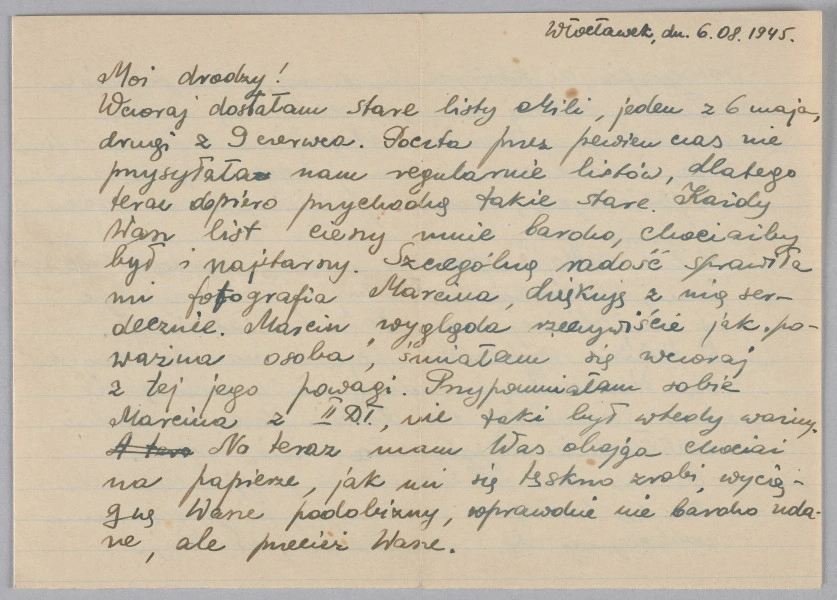 Włocławek, dn. 6.08.1945.
Moi drodzy!
Wczoraj dostałam stare listy Mili, jeden z 6 maja,
drugi z 9 czerwca. Poczta przez pewien czas nie
przysyłała nam regularnie listów, dlatego
teraz dopiero przychodzą takie stare. Każdy
Wasz list cieszy mnie bardzo, chociażby
był i najstarszy. Szczególną radość sprawiła
mi fotografia Marcina, dziękuję z nią ser-
decznie. Marcin wygląda rzeczywiście jak po-
ważna osoba, śmiałam się wczoraj
z tej jego powagi. Przypomniałam sobie
Marcina z II D.T., nie taki był wtedy ważny.
A teraz No teraz mam Was obojga chociaż
na papierze, jak mi się tęskno zrobi, wycią-
gnę Wasze podobizny, wprawdzie nie bardzo uda-
ne, ale przecież Wasze.